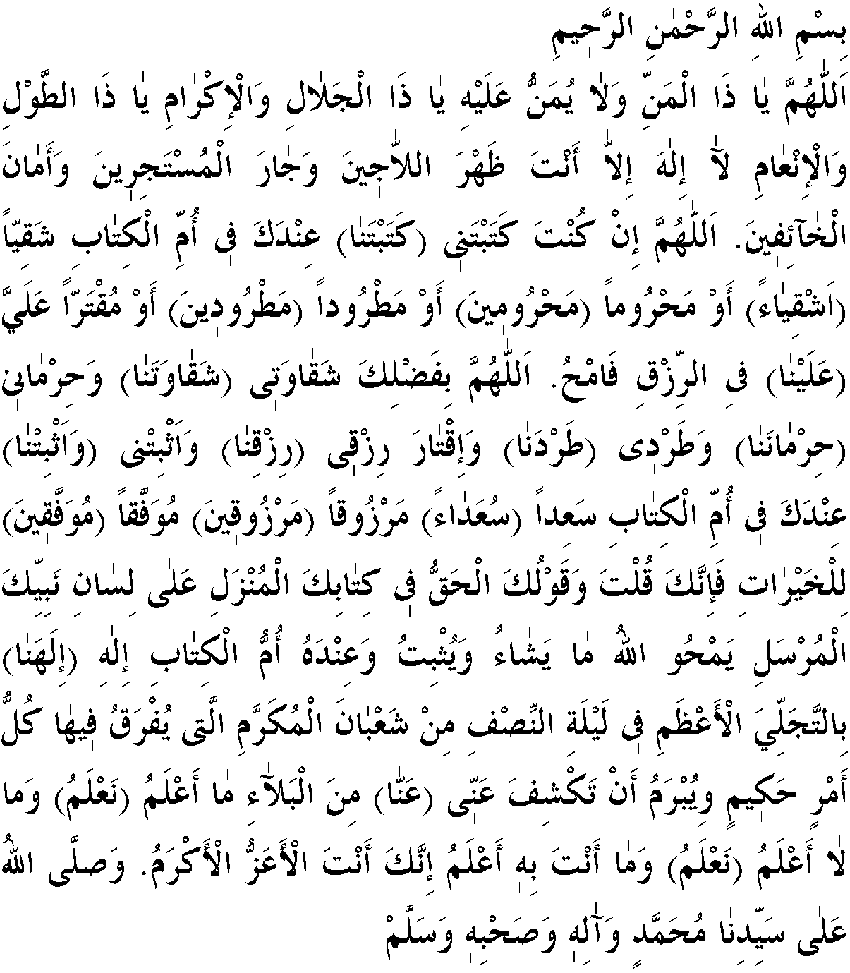 بِسْمِ اللهِ الرَّحْمٰنِ الرَّحٖيمِ
اَللّٰهُمَّ يٰا ذَا الْمَنِّ وَلاٰ يُمَنُّ عَلَيْهِ يٰا ذَا الْجَلاٰلِ وَالْإِكْرٰامِ يٰا ذَا الطَّوْلِ
وَالْإِنْعٰامِ لآٰ إِلٰهَ إِلاّٰ أَنْتَ ظَهْرَ اللاّٰجٖينَ وَجٰارَ الْمُسْتَجٖرٖينَ وَأَمٰانَ
الْخٰآئِفٖينَ. اَللّٰهُمَّ إِنْ كُنْتَ كَتَبْتَنٖى (كَتَبْتَنٰا) عِنْدَكَ فٖى أُمِّ الْكِتٰابِ شَقِيّاً
(اَشْقِيٰاءً) أَوْ مَحْرُوماً (مَحْرُومٖينَ) أَوْ مَطْرُوداً (مَطْرُودٖينَ) أَوْ مُقْتَرّاً عَلَيَّ
(عَلَيْنٰا) فىِ الرِّزْقِ فَامْحُ. اَللّٰهُمَّ بِفَضْلِكَ شَقٰاوَتٖى (شَقٰاوَتَنٰا) وَحِرْمٰانٖى
(حِرْمٰانَنٰا) وَطَرْدٖى (طَرْدَنٰا) وَإِقْتٰارَ رِزْقٖى (رِزْقِنٰا) وَاَثْبِتْنٖى (وَاَثْبِتْنٰا)
عِنْدَكَ فٖى أُمِّ الْكِتٰابِ سَعٖداً (سُعَدٰاءً) مَرْزُوقاً (مَرْزُوقٖينَ) مُوَفَّقاً (مُوَفَّقٖينَ)
لِلْخَيْرٰاتِ فَإِنَّكَ قُلْتَ وَقَوْلُكَ الْحَقُّ فٖى كِتٰابِكَ الْمُنْزَلِ عَلٰى لِسٰانِ نَبِيِّكَ
الْمُرْسَلِ يَمْحُو اللهُ مٰا يَشٰاءُ وَيُثْبِتُ وَعِنْدَهُ أُمُّ الْكِتٰابِ إِلٰهٖى (إِلَهَنٰا)
بِالتَّجَلِّيَ الْأَعْظَمِ فٖى لَيْلَةِ النِّصْفِ مِنْ شَعْبٰانَ الْمُكَرَّمِ الَّتٖى يُفْرَقُ فٖيهٰا كُلُّ
أَمْرٍ حَكٖيمٍ وِيُبْرَمُ أَنْ تَكْشِفَ عَنّٖى (عَنّٰا) مِنَ الْبَلآٰءِ مٰا أَعْلَمُ (نَعْلَمُ) وَما
لٰا أَعْلَمُ (نَعْلَمُ) وَمٰا أَنْتَ بِهٖ أَعْلَمُ إِنَّكَ أَنْتَ الْأَعَزُّ الْأَكْرَمُ. وَصلَّى اللهُ
عَلٰى سَيِّدِنٰا مُحَمَّدٍ وَآلِهٖ وَصَحْبِهٖ وَسَلَّمْ